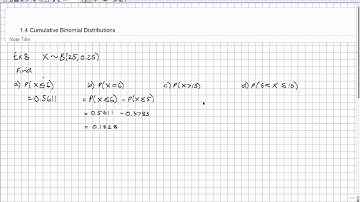 1.4 Cumulative Binomial Distributions
Note Title
Ex 3 X ~ B(25, 0.25)
Find
a) P(X ≤ 6) b) P(X = 6) c) P(X > 15) d) P(6 < X ≤ 10)
= 0.5611 = P(X ≤ 6) - P(X ≤ 5)
= 0.5611 - 0.3783
= 0.1828